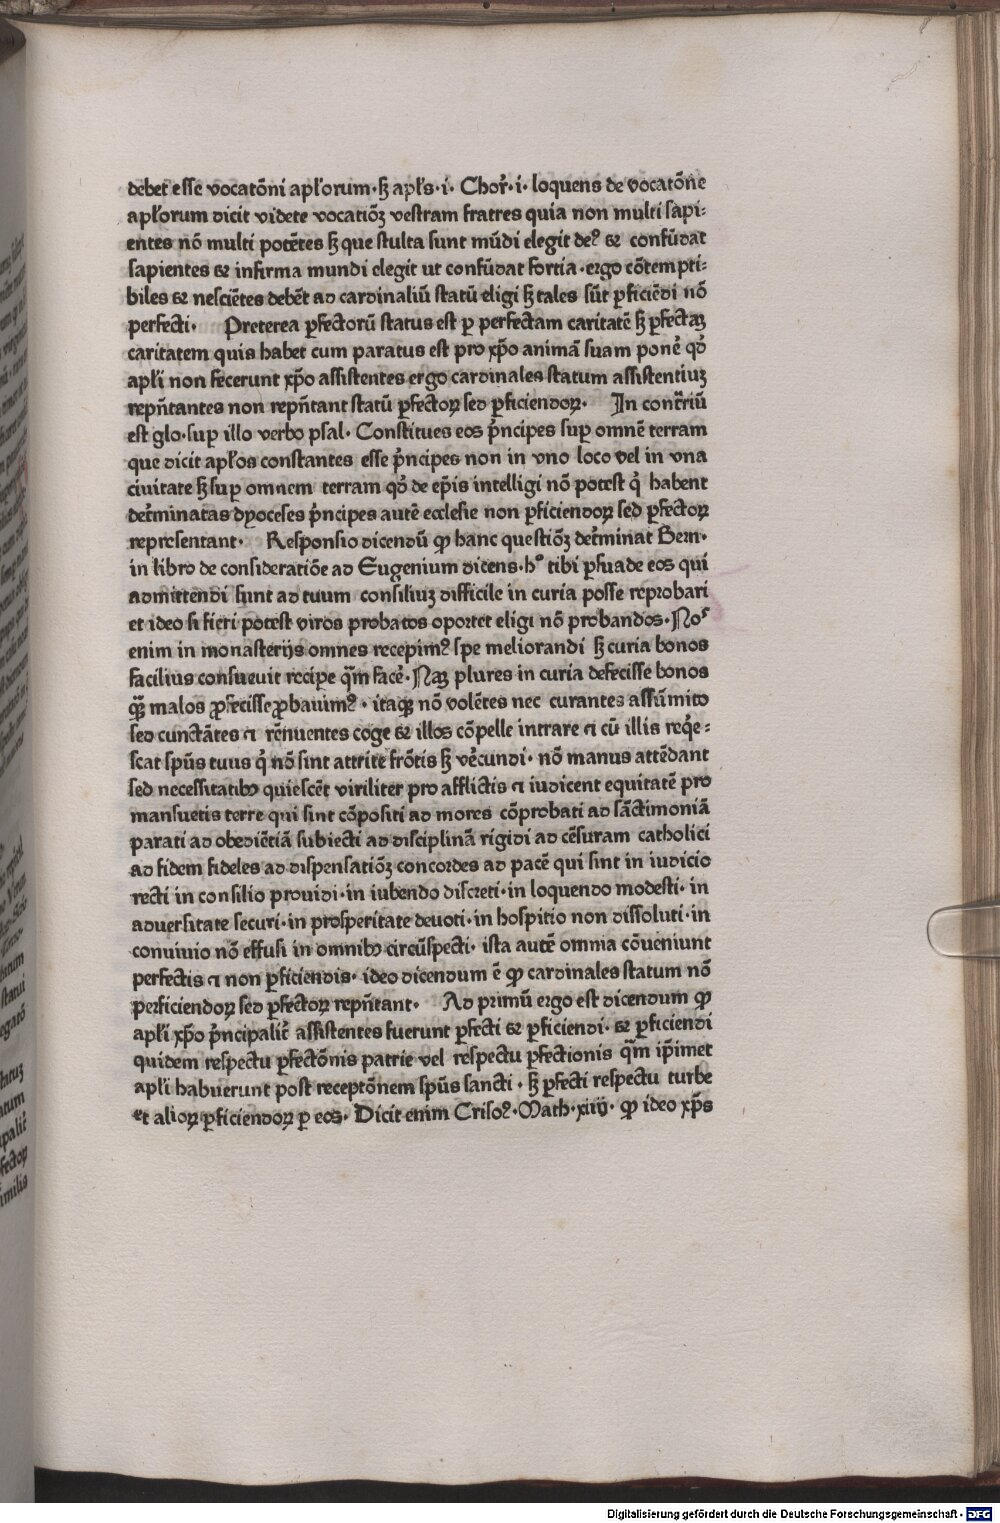 debet esse vocatōni apl'orum·sꝫ apl's·i· Chor̃·i· loquens de vocatōne
apl'orum dicit videte vocatiōꝫ vestram fratres quia non multi sapi⸗
entes nō multi potētes sꝫ que stulta sunt mūdi elegit deꝰ & confūdat
sapientes & infirma mundi elegit ut confūdat fortia·ergo cōtempti⸗
biles & nesciētes debēt ad cardinaliū statū eligi sꝫ tales sūt ꝑficiēdi nō
perfecti· Preterea ꝑfectorū status est ꝑ perfectam caritatē sꝫ ꝑfectaꝫ
caritatem quis habet cum paratus est pro xp̄o animā suam ponē qđ
apl'i non fecerunt xp̄o assistentes ergo cardinales statum assistentiuꝫ
repn̄tantes non repn̄tant statū ꝑfectoꝝ sed ꝑficiendoꝝ· In contr̄iū
est glo·suꝑ illo verbo psal· Constitues eos p̄ncipes suꝑ omnē terram
que dicit apl'os constantes esse p̄ncipes non in vno loco vel in vna
ciuitate sꝫ suꝑ omnem terram qđ de ep̄is intelligi nō potest q̇ habent
det̃minatas dyoceses p̄ncipes autē ecclesie non ꝑficiendoꝝ sed ꝑfectoꝝ
representant· Responsio dicendū ꝙ hanc questiōꝫ det̃minat Bern·
in libro de consideratiōe ad Eugenium dicens·h° tibi ꝑsuade eos qui
admittendi sunt ad tuum consiliuꝫ difficile in curia posse reprobari
et ideo si fieri potest viros probatos oportet eligi nō probandos·Noˢ
enim in monasterijs omnes recepimꝰ spe meliorandi sꝫ curia bonos
facilius consueuit recipe q̄m facē·Naꝫ plures in curia defecisse bonos
qꝫ malos ꝓfecisse ꝓbauimꝰ· itaqꝫ nō volētes nec curantes assūmito
sed cunctātes ⁊ rēnuentes coge & illos cōpelle intrare ⁊ cū illis reqͥe⸗
scat sp̄us tuus q̇ nō sint attrite frōtis sꝫ vēcundi· nō manus attēdant
sed necessitatibꝰ quiescēt viriliter pro afflictis ⁊ iudicent equitatē pro
mansuetis terre qui sint cōpositi ad mores cōprobati ad sāctimoniā
parati ad obediētiā subiecti ad disciplinā rigidi ad cēsuram catholici
ad fidem fideles ad dispensatiōꝫ concordes ad pacē qui sint in iudicio
recti in consilio prouidi·in iubendo discreti·in loquendo modesti·in
aduersitate securi·in prosperitate deuoti·in hospitio non dissoluti·in
conuiuio nō effusi in omnibꝰ circūspecti· ista autē omnia cōueniunt
perfectis ⁊ non ꝑficiendis· ideo dicendum ē ꝙ cardinales statum nō
perficiendoꝝ sed ꝑfectoꝝ repn̄tant· Ad primū ergo est dicendum ꝙ
apl'i xp̄o p̄ncipalit̃ assistentes fuerunt ꝑfecti & ꝑficiendi·& ꝑficiendi
quidem respectu ꝑfectōnis patrie vel respectu ꝑfectionis q̄m ip̄imet
apl'i habuerunt post receptōnem sp̄us sancti·sꝫ ꝑfecti respectu turbe
et alioꝝ ꝑficiendoꝝ ꝑ eos· Dicit enim Crisoꝰ·Math·xiiij· ꝙ ideo xp̄s
Digitalisierung gefördert durch die Deutsche Forschungsgemeinschaft - DFG